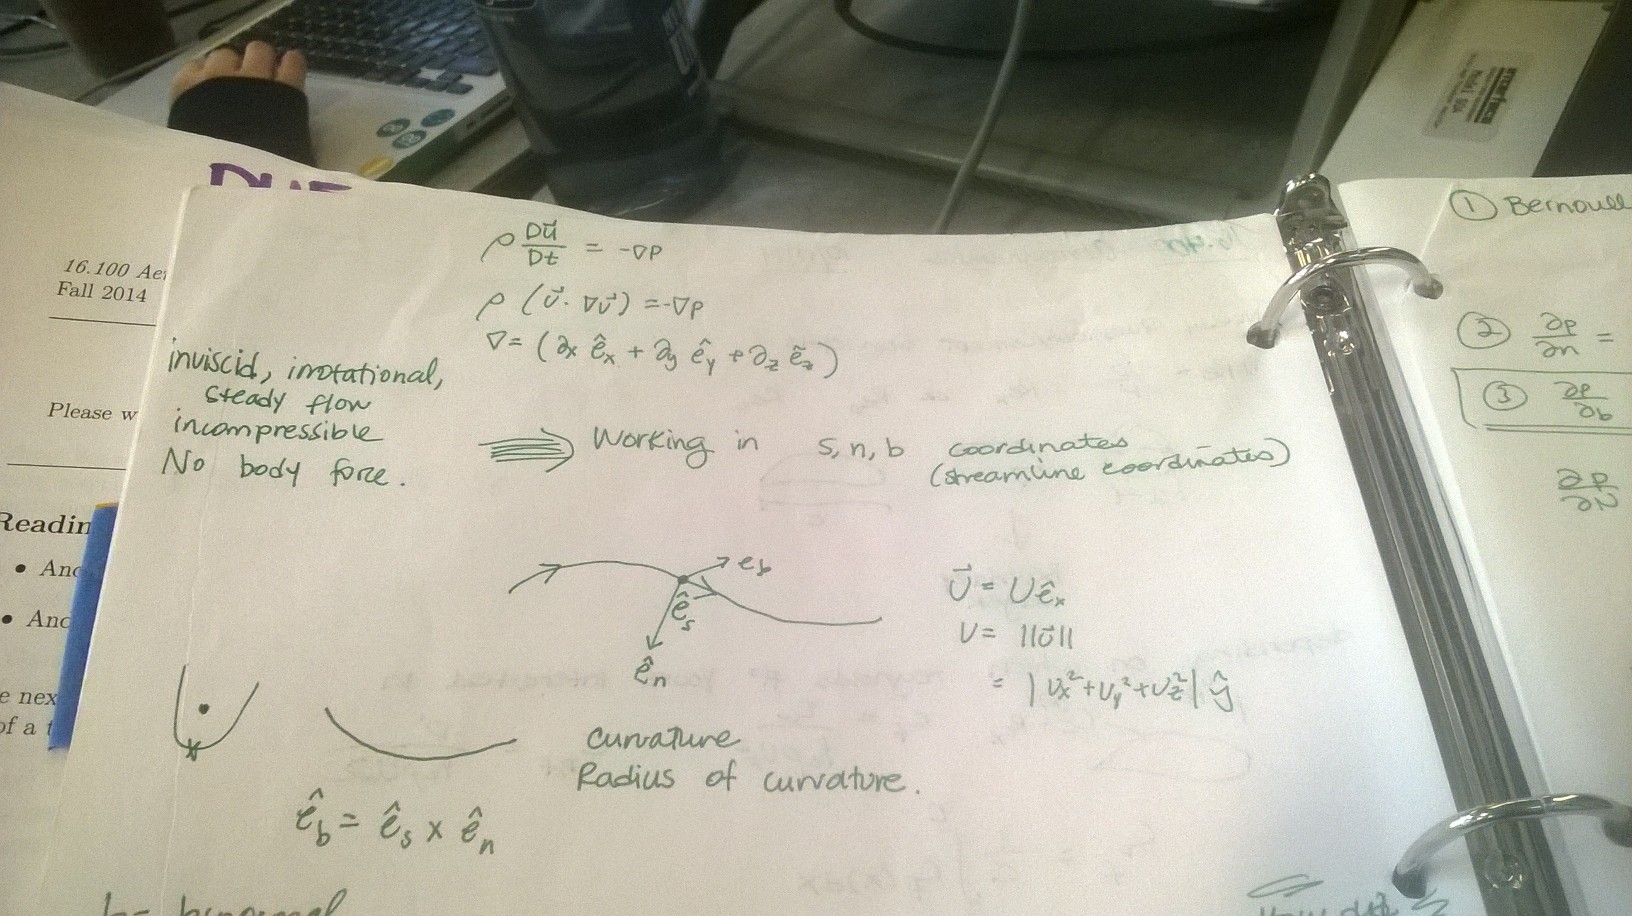 DUE
16.100 Ae
Fall 2014
Please w
Readin
• And
• And
e nex
of a t
ρ Du⃗/Dt = -∇P
ρ (U⃗ · ∇U⃗) = -∇P
∇ = (∂x ê_x + ∂y ê_y + ∂z ẽ_z)
inviscid, irrotational,
steady flow
incompressible
No body force.
Working in s, n, b coordinates
(streamline coordinates)
e_b
ê_s
ê_n
U⃗ = U ê_x
U = ||U⃗||
= | Ux² + Uy² + Uz² | ŷ
curvature
Radius of curvature.
ê_b = ê_s × ê_n
b = binormal
① Bernoull
② ∂P/∂n =
③ ∂P/∂b
∂P/∂N